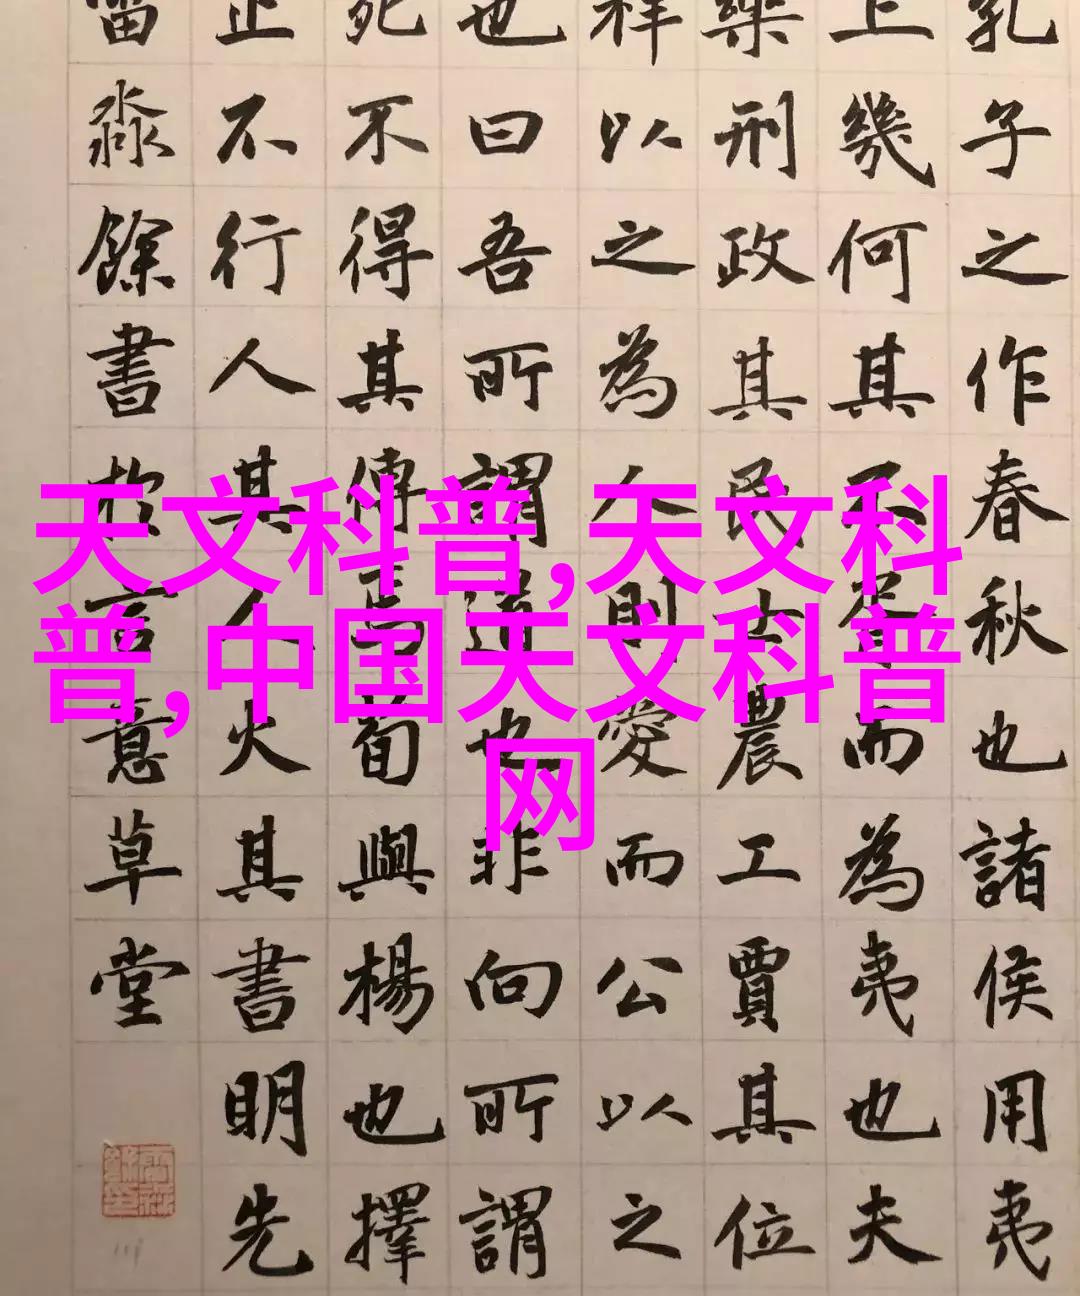 孔子之作春秋也諸侯用夷
上幾何其不胥而為夷也夫
樂刑政其民士農工賈其位
祥以之為人則愛而公以之
也曰吾所謂道也非向所謂
死不得其傳焉荀與楊也擇
止不行人其人火其書明先
淼餘書於言意草堂
天文科普,天文科
普,中国天文科普
网